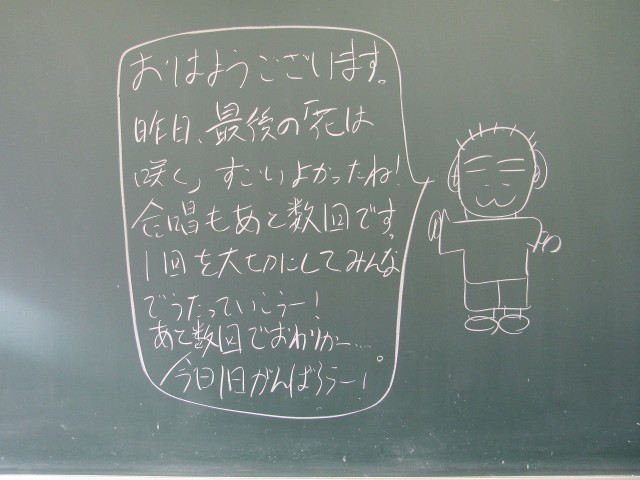 おはようございます。
昨日、最後の「花は
咲く」すごいよかったね!
合唱もあと数回です。
1回を大切にしてみんな
でうたっていこうー!
あと数回でおわりかー……。
今日1日がんばろうー!